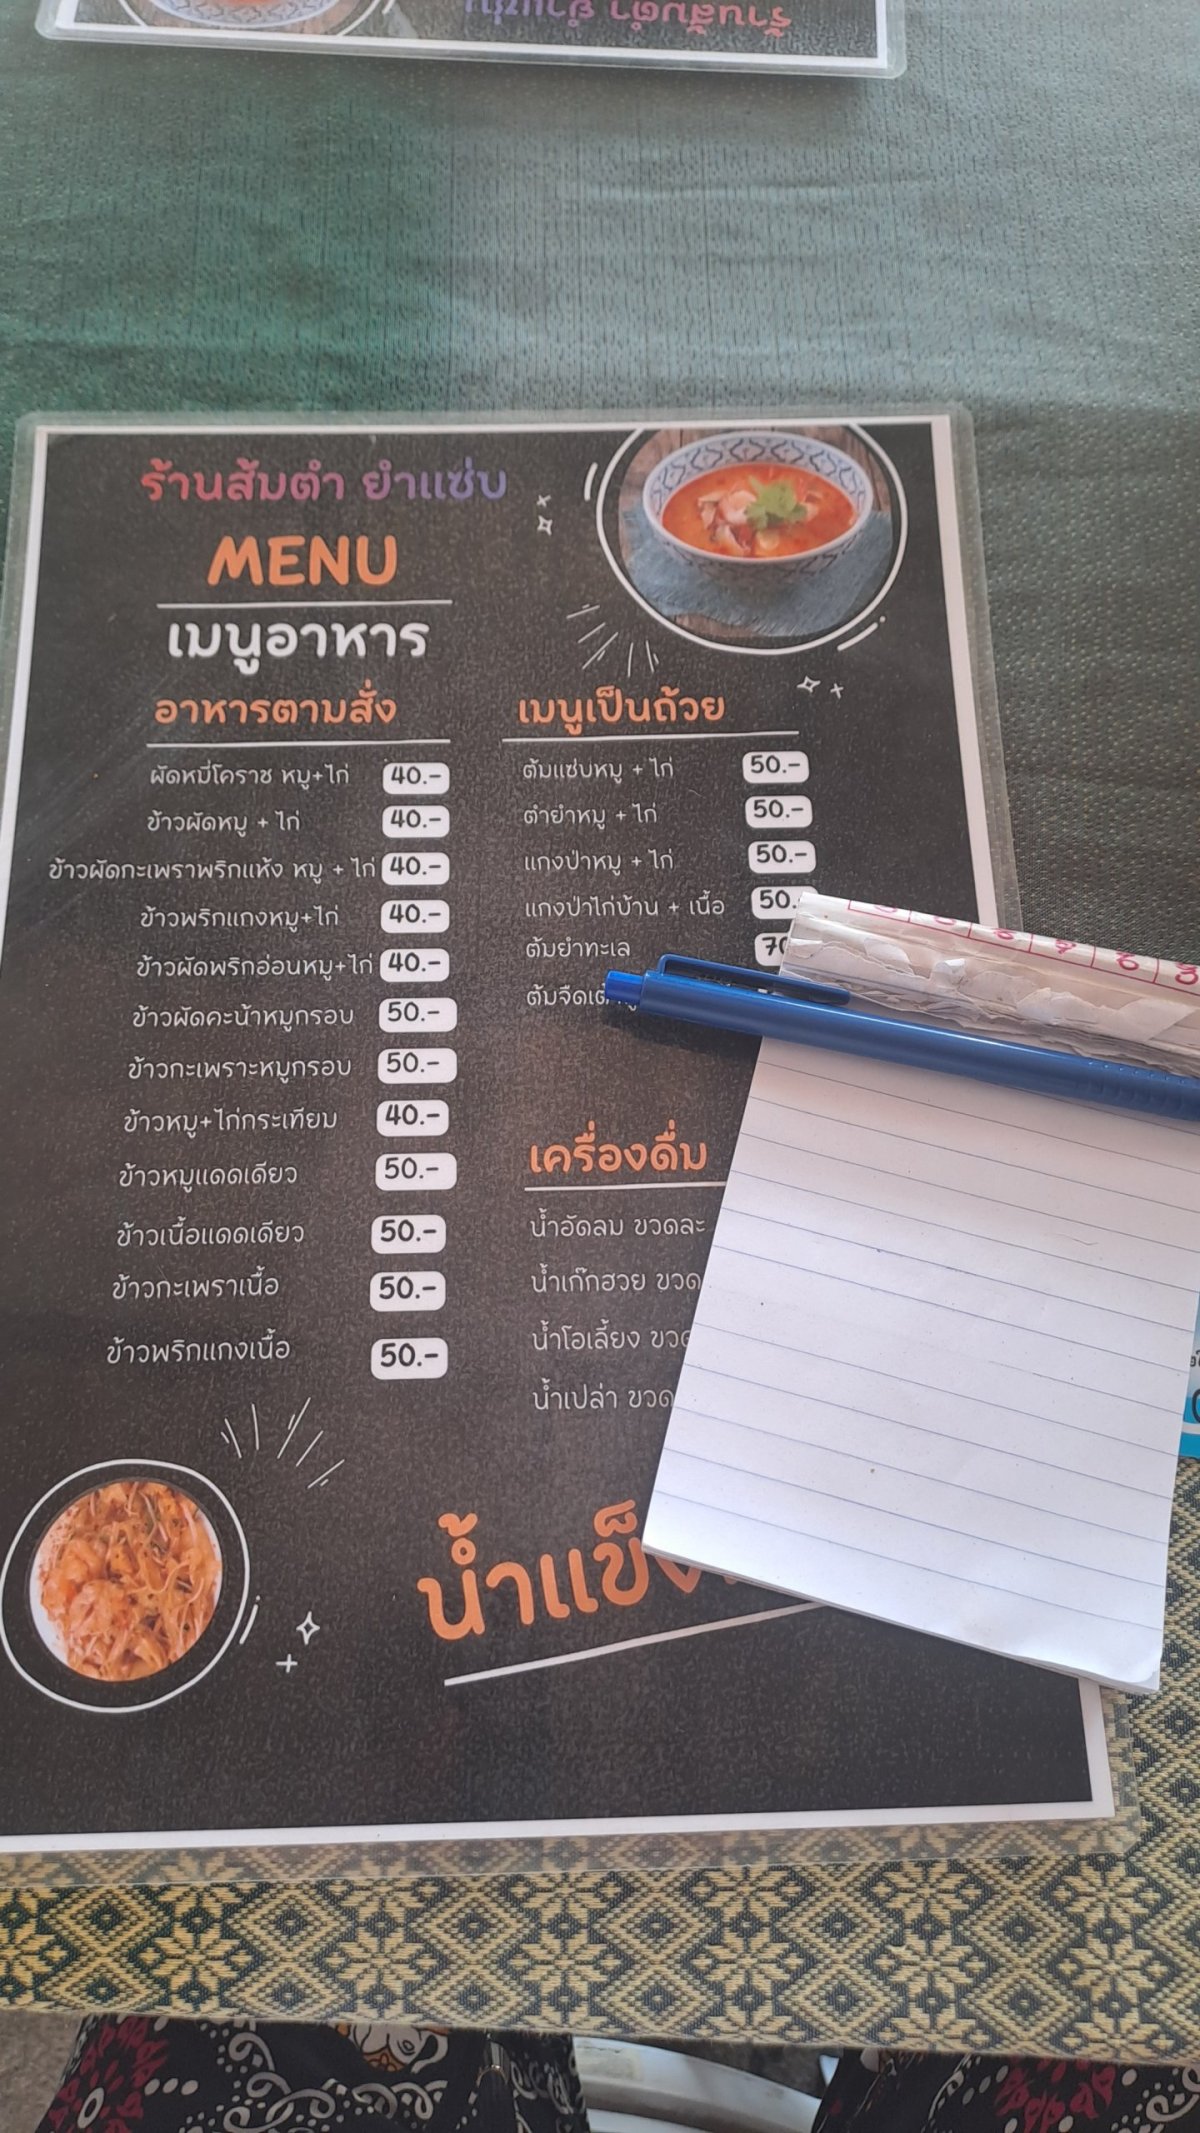 ร้านส้มตำ ยำแซ่บ
ร้านส้มตำ ยำแซ่บ
MENU
เมนูอาหาร
อาหารตามสั่ง
ผัดหมี่โคราช หมู+ไก่ 40.-
ข้าวผัดหมู + ไก่ 40.-
ข้าวผัดกะเพราพริกแห้ง หมู + ไก่ 40.-
ข้าวพริกแกงหมู+ไก่ 40.-
ข้าวผัดพริกอ่อนหมู+ไก่ 40.-
ข้าวผัดคะน้าหมูกรอบ 50.-
ข้าวกะเพราะหมูกรอบ 50.-
ข้าวหมู+ไก่กระเทียม 40.-
ข้าวหมูแดดเดียว 50.-
ข้าวเนื้อแดดเดียว 50.-
ข้าวกะเพราเนื้อ 50.-
ข้าวพริกแกงเนื้อ 50.-
เมนูเป็นถ้วย
ต้มแซ่บหมู + ไก่ 50.-
ตำยำหมู + ไก่ 50.-
แกงป่าหมู + ไก่ 50.-
แกงป่าไก่บ้าน + เนื้อ 50.
ต้มยำทะเล 70
ต้มจืด
เครื่องดื่ม
น้ำอัดลม ขวดละ
น้ำเก๊กฮวย ขวด
น้ำโอเลี้ยง ขวด
น้ำเปล่า ขวด
น้ำแข็ง